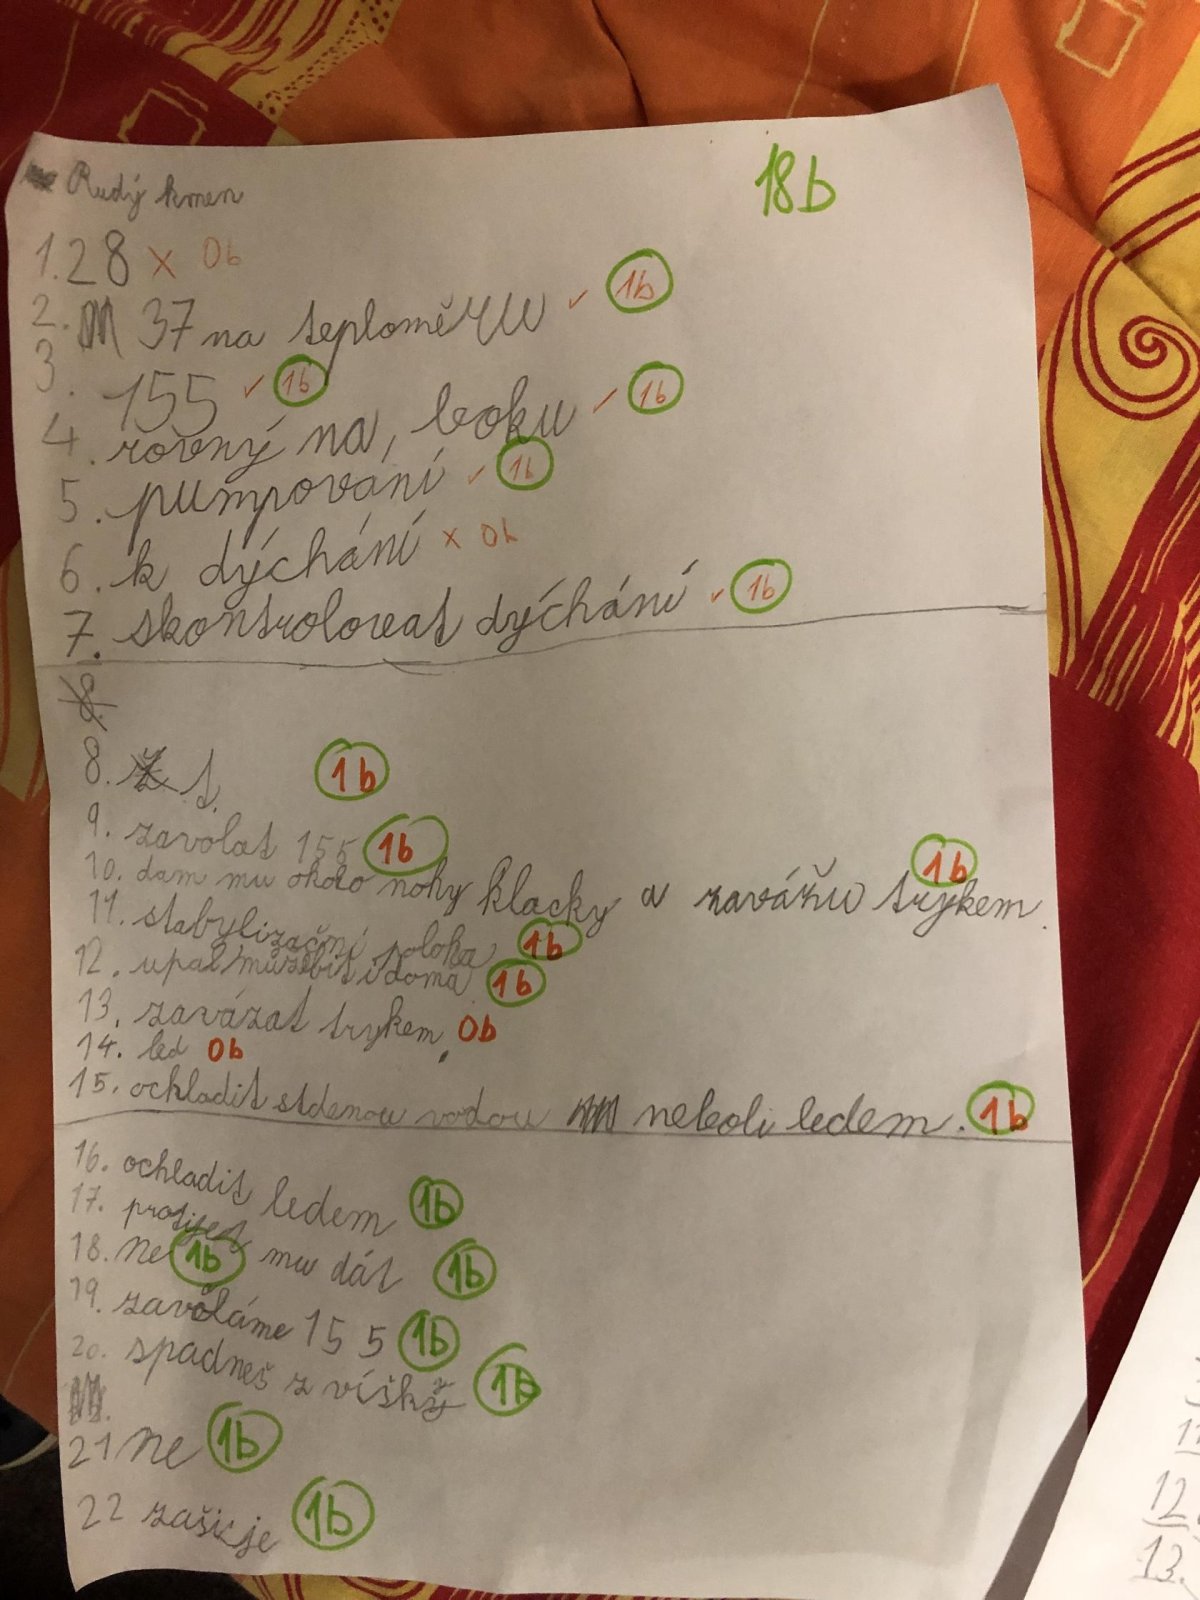 Rudý kmen 18b
1. 28 x 0b
2. 37 na teploměru ✓ 1b
3. 155 ✓ 1b
4. rovný na, boku ✓ 1b
5. pumpování ✓ 1b
6. k dýchání x 0b
7. skontrolovat dýchání ✓ 1b
8.
8. t. 1b
9. zavolat 155 1b
10. dam mu okolo nohy klacky a zavážu trykem 1b
11. stabylizační poloha 1b
12. upal může bit i doma 1b
13. zavázat trykem. 0b
14. led 0b
15. ochladit stdenou vodou neboli ledem. 1b
16. ochladit ledem 1b
17. protijet mu dát 1b
18. ne 1b
19. zavoláme 155 1b
20. spadneš z víšky 1b
21 ne 1b
22 zašicje 1b
12
13.